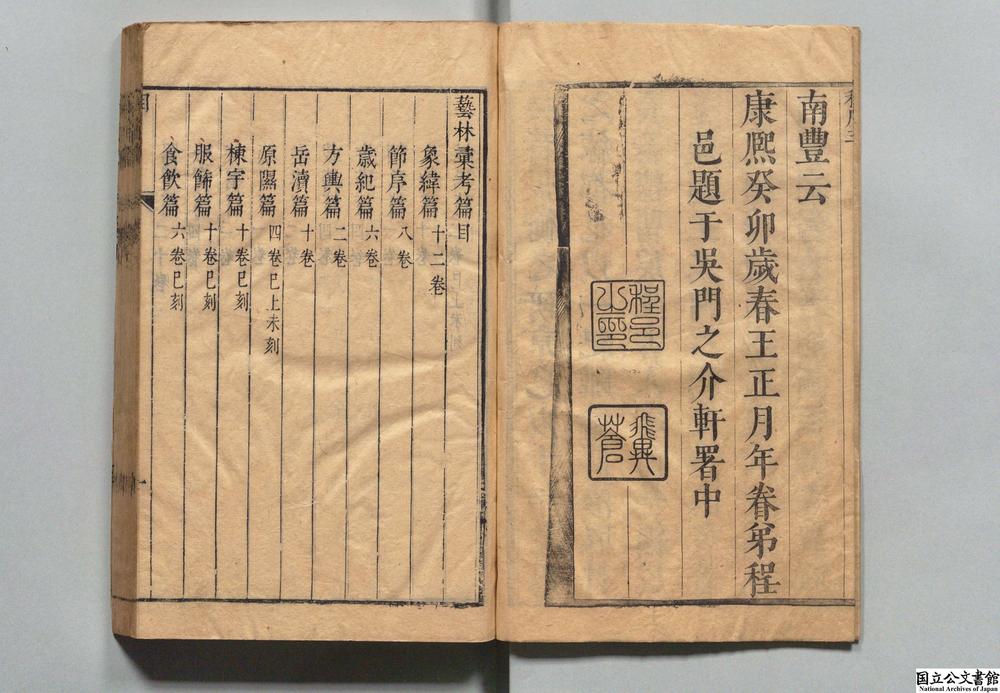 南豐云
康熙癸卯歲春王正月年眷弟程
邑題于吳門之介軒署中
程邑之印
飛翼蒼
藝林彙考篇目
象緯篇 十二卷
節序篇 八卷
歲紀篇 六卷
方輿篇 二卷
岳瀆篇 十卷
原隰篇 四卷已上未刻
棟宇篇 十卷已刻
服飾篇 十卷已刻
食飲篇 六卷已刻
国立公文書館
National Archives of Japan